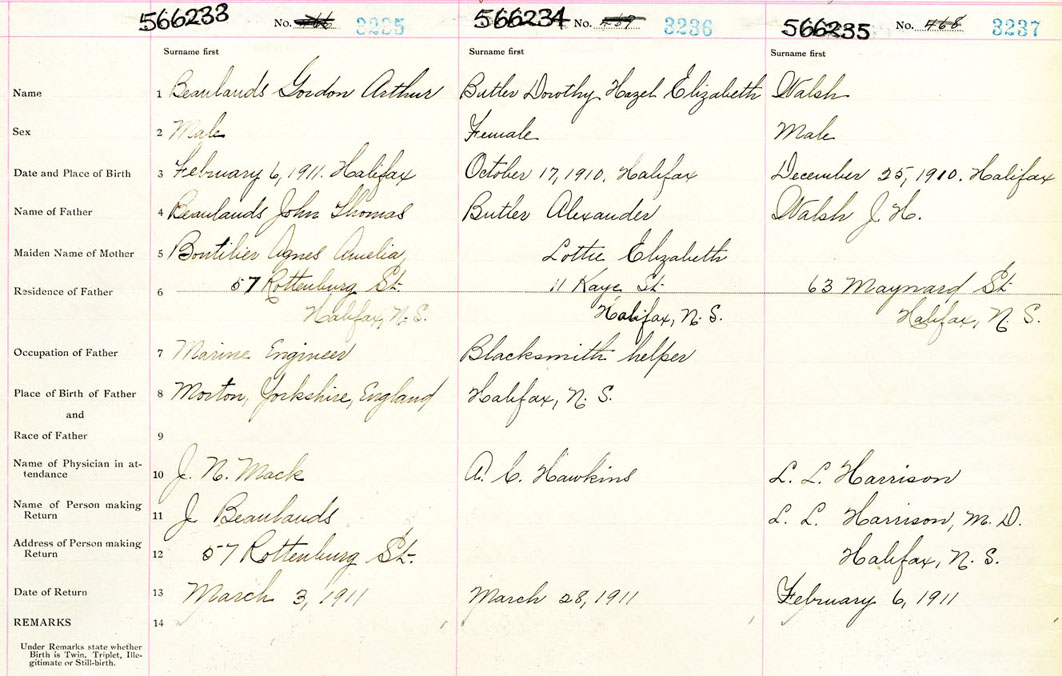 566233 No. 466 3235 566234 No. 467 3236 566235 No. 468 3237
Surname first Surname first Surname first
Name 1 Beaulands Gordon Arthur Butler Dorothy Hazel Elizabeth Walsh
Sex 2 Male Female Male
Date and Place of Birth 3 February 6, 1911. Halifax October 17, 1910. Halifax December 25, 1910. Halifax
Name of Father 4 Beaulands John Thomas Butler Alexander Walsh J. H.
Maiden Name of Mother 5 Boutilier Agnes Amelia, Lottie Elizabeth
Residence of Father 6 57 Rottenburg St. 11 Kaye St. 63 Maynard St.
Halifax, N. S. Halifax, N. S. Halifax, N. S.
Occupation of Father 7 Marine Engineer Blacksmith helper
Place of Birth of Father 8 Morton, Yorkshire, England Halifax, N. S.
and
Race of Father 9
Name of Physician in at-
tendance 10 J. N. Mack A. C. Hawkins L. L. Harrison
Name of Person making
Return 11 J. Beaulands L. L. Harrison, M. D.
Address of Person making
Return 12 57 Rottenburg St. Halifax, N. S.
Date of Return 13 March 3, 1911 March 28, 1911 February 6, 1911
REMARKS 14
Under Remarks state whether
Birth is Twin, Triplet, Ille-
gitimate or Still-birth.